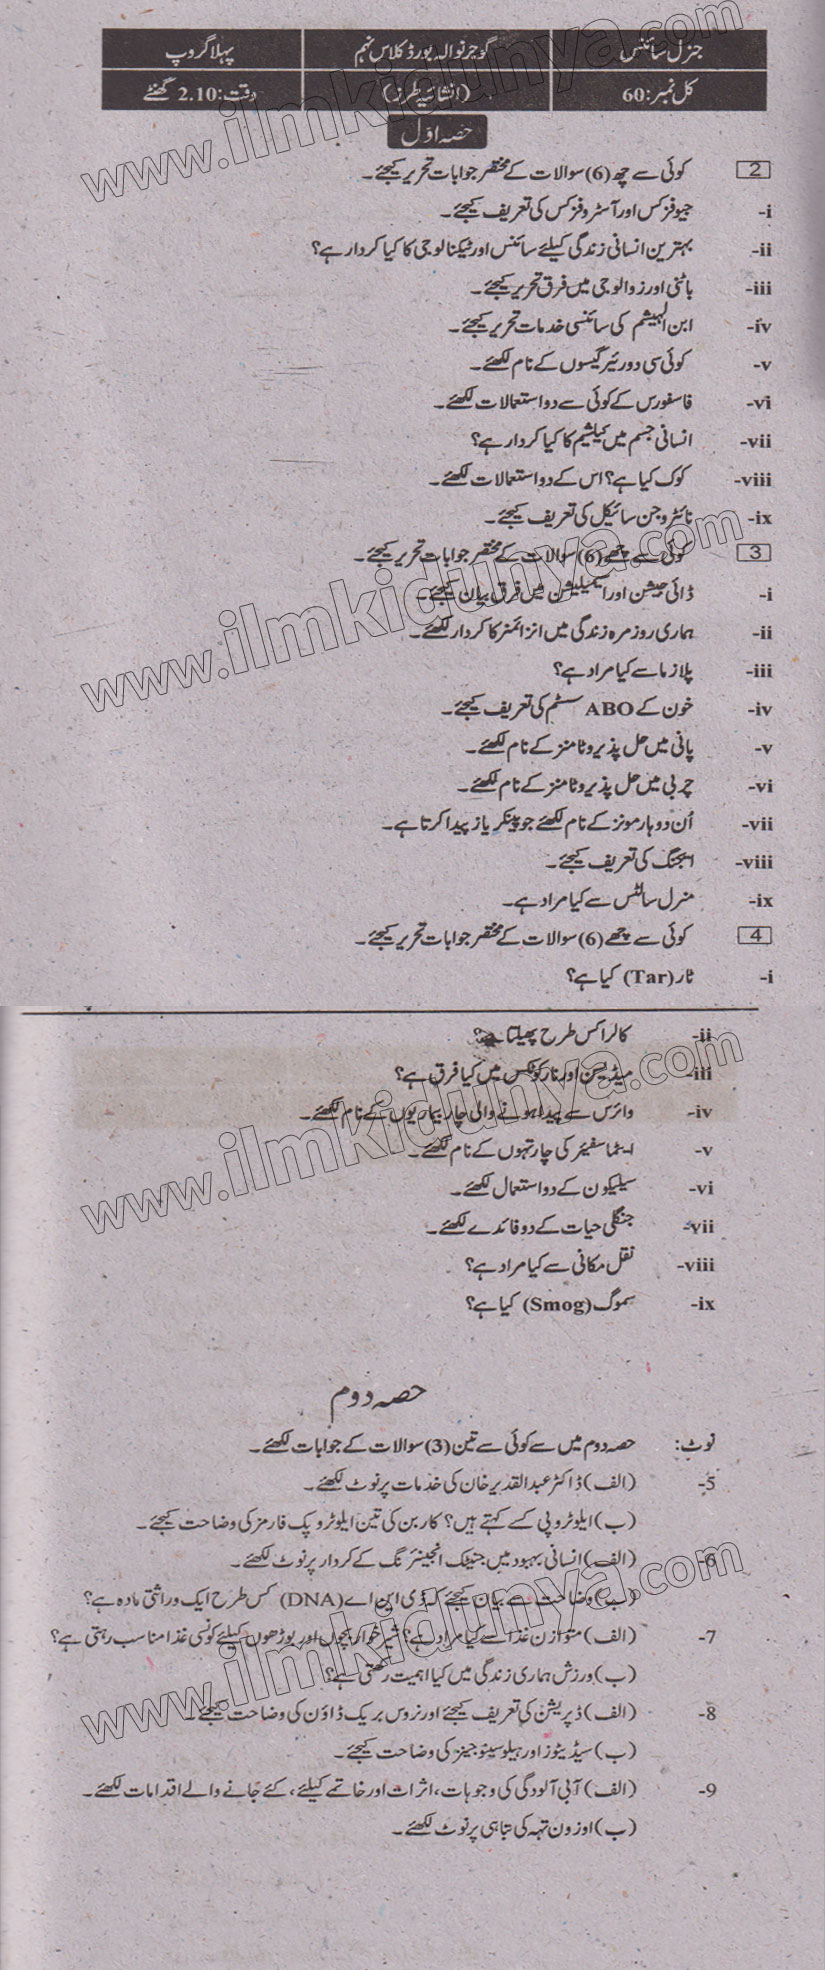 جنرل سائنس گوجرنوالہ بورڈ کلاس نہم پہلا گروپ
کل نمبر:60 (انشائیہ طرز) وقت:2.10 گھنٹے
حصہ اوّل
2 کوئی سے چھ (6) سوالات کے مختصر جوابات تحریر کیجئے۔
i- جیوفزکس اور آسٹروفزکس کی تعریف کیجئے۔
ii- بہترین انسانی زندگی کیلئے سائنس اور ٹیکنالوجی کا کیا کردار ہے؟
iii- باٹنی اور زوالوجی میں فرق تحریر کیجئے۔
iv- ابن الہیشم کی سائنسی خدمات تحریر کیجئے۔
v- کوئی سی دو رئیر گیسوں کے نام لکھئے۔
vi- فاسفورس کے کوئی سے دو استعمالات لکھئے۔
vii- انسانی جسم میں کیلشیم کا کیا کردار ہے؟
viii- کوک کیا ہے؟ اس کے دو استعمالات لکھئے۔
ix- نائٹروجن سائیکل کی تعریف کیجئے۔
3 کوئی سے چھے (6) سوالات کے مختصر جوابات تحریر کیجئے۔
i- ڈائی جیشن اور اسیمیلیشن میں فرق بیان کیجئے۔
ii- ہماری روزمرہ زندگی میں انزائمز کا کردار لکھئے۔
iii- پلازما سے کیا مراد ہے؟
iv- خون کے ABO سسٹم کی تعریف کیجئے۔
v- پانی میں حل پذیر وٹامنز کے نام لکھئے۔
vi- چربی میں حل پذیر وٹامنز کے نام لکھئے۔
vii- اُن دو ہارمونز کے نام لکھئے جو پینکریاز پیدا کرتا ہے۔
viii- ایجنگ کی تعریف کیجئے۔
ix- منرل سالٹس سے کیا مراد ہے۔
4 کوئی سے چھے (6) سوالات کے مختصر جوابات تحریر کیجئے۔
i- ٹار (Tar) کیا ہے؟
ii- کالرا کس طرح پھیلتا ہے؟
iii- میڈیسن اور نارکوٹکس میں کیا فرق ہے؟
iv- وائرس سے پیدا ہونے والی چار بیماریوں کے نام لکھئے۔
v- ایٹماسفیئر کی چار تہوں کے نام لکھئے۔
vi- سیلیکون کے دو استعمال لکھئے۔
vii- جنگلی حیات کے دو فائدے لکھئے۔
viii- نقل مکانی سے کیا مراد ہے؟
ix- سموگ (Smog) کیا ہے؟
حصہ دوم
نوٹ: حصہ دوم میں سے کوئی سے تین (3) سوالات کے جوابات لکھئے۔
5- (الف) ڈاکٹر عبدالقدیر خان کی خدمات پر نوٹ لکھئے۔
(ب) ایلوٹروپی کسے کہتے ہیں؟ کاربن کی تین ایلوٹروپک فارمز کی وضاحت کیجئے۔
6- (الف) انسانی بہبود میں جنیٹک انجینئرنگ کے کردار پر نوٹ لکھئے۔
(ب) وضاحت سے بیان کیجئے کہ ڈی این اے (DNA) کس طرح ایک وراثتی مادہ ہے؟
7- (الف) متوازن غذا سے کیا مراد ہے؟ شیر خوار بچوں اور بوڑھوں کیلئے کونسی غذا مناسب رہتی ہے؟
(ب) ورزش ہماری زندگی میں کیا اہمیت رکھتی ہے؟
8- (الف) ڈپریشن کی تعریف کیجئے اور نروس بریک ڈاؤن کی وضاحت کیجئے۔
(ب) سیڈیٹوز اور ہیلوسینوجینز کی وضاحت کیجئے۔
9- (الف) آبی آلودگی کی وجوہات، اثرات اور خاتمے کیلئے، کئے جانے والے اقدامات لکھئے۔
(ب) اوزون تہہ کی تباہی پر نوٹ لکھئے۔
www.ilmkidunya.com
www.ilmkidunya.com
www.ilmkidunya.com
www.ilmkidunya.com